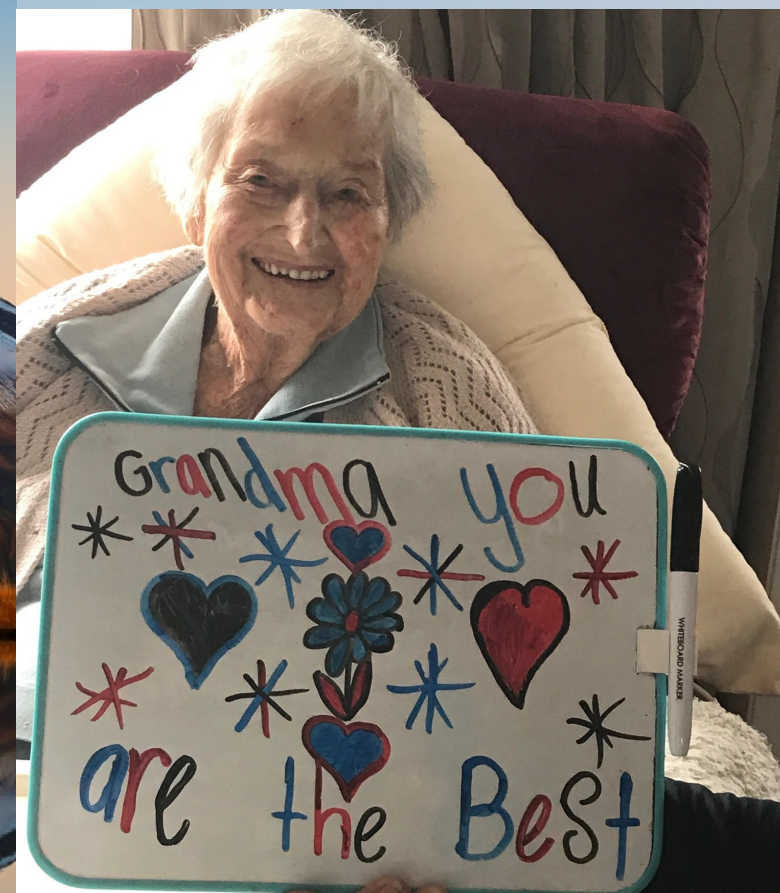 Grandma you
are the Best
WHITEBOARD MARKER